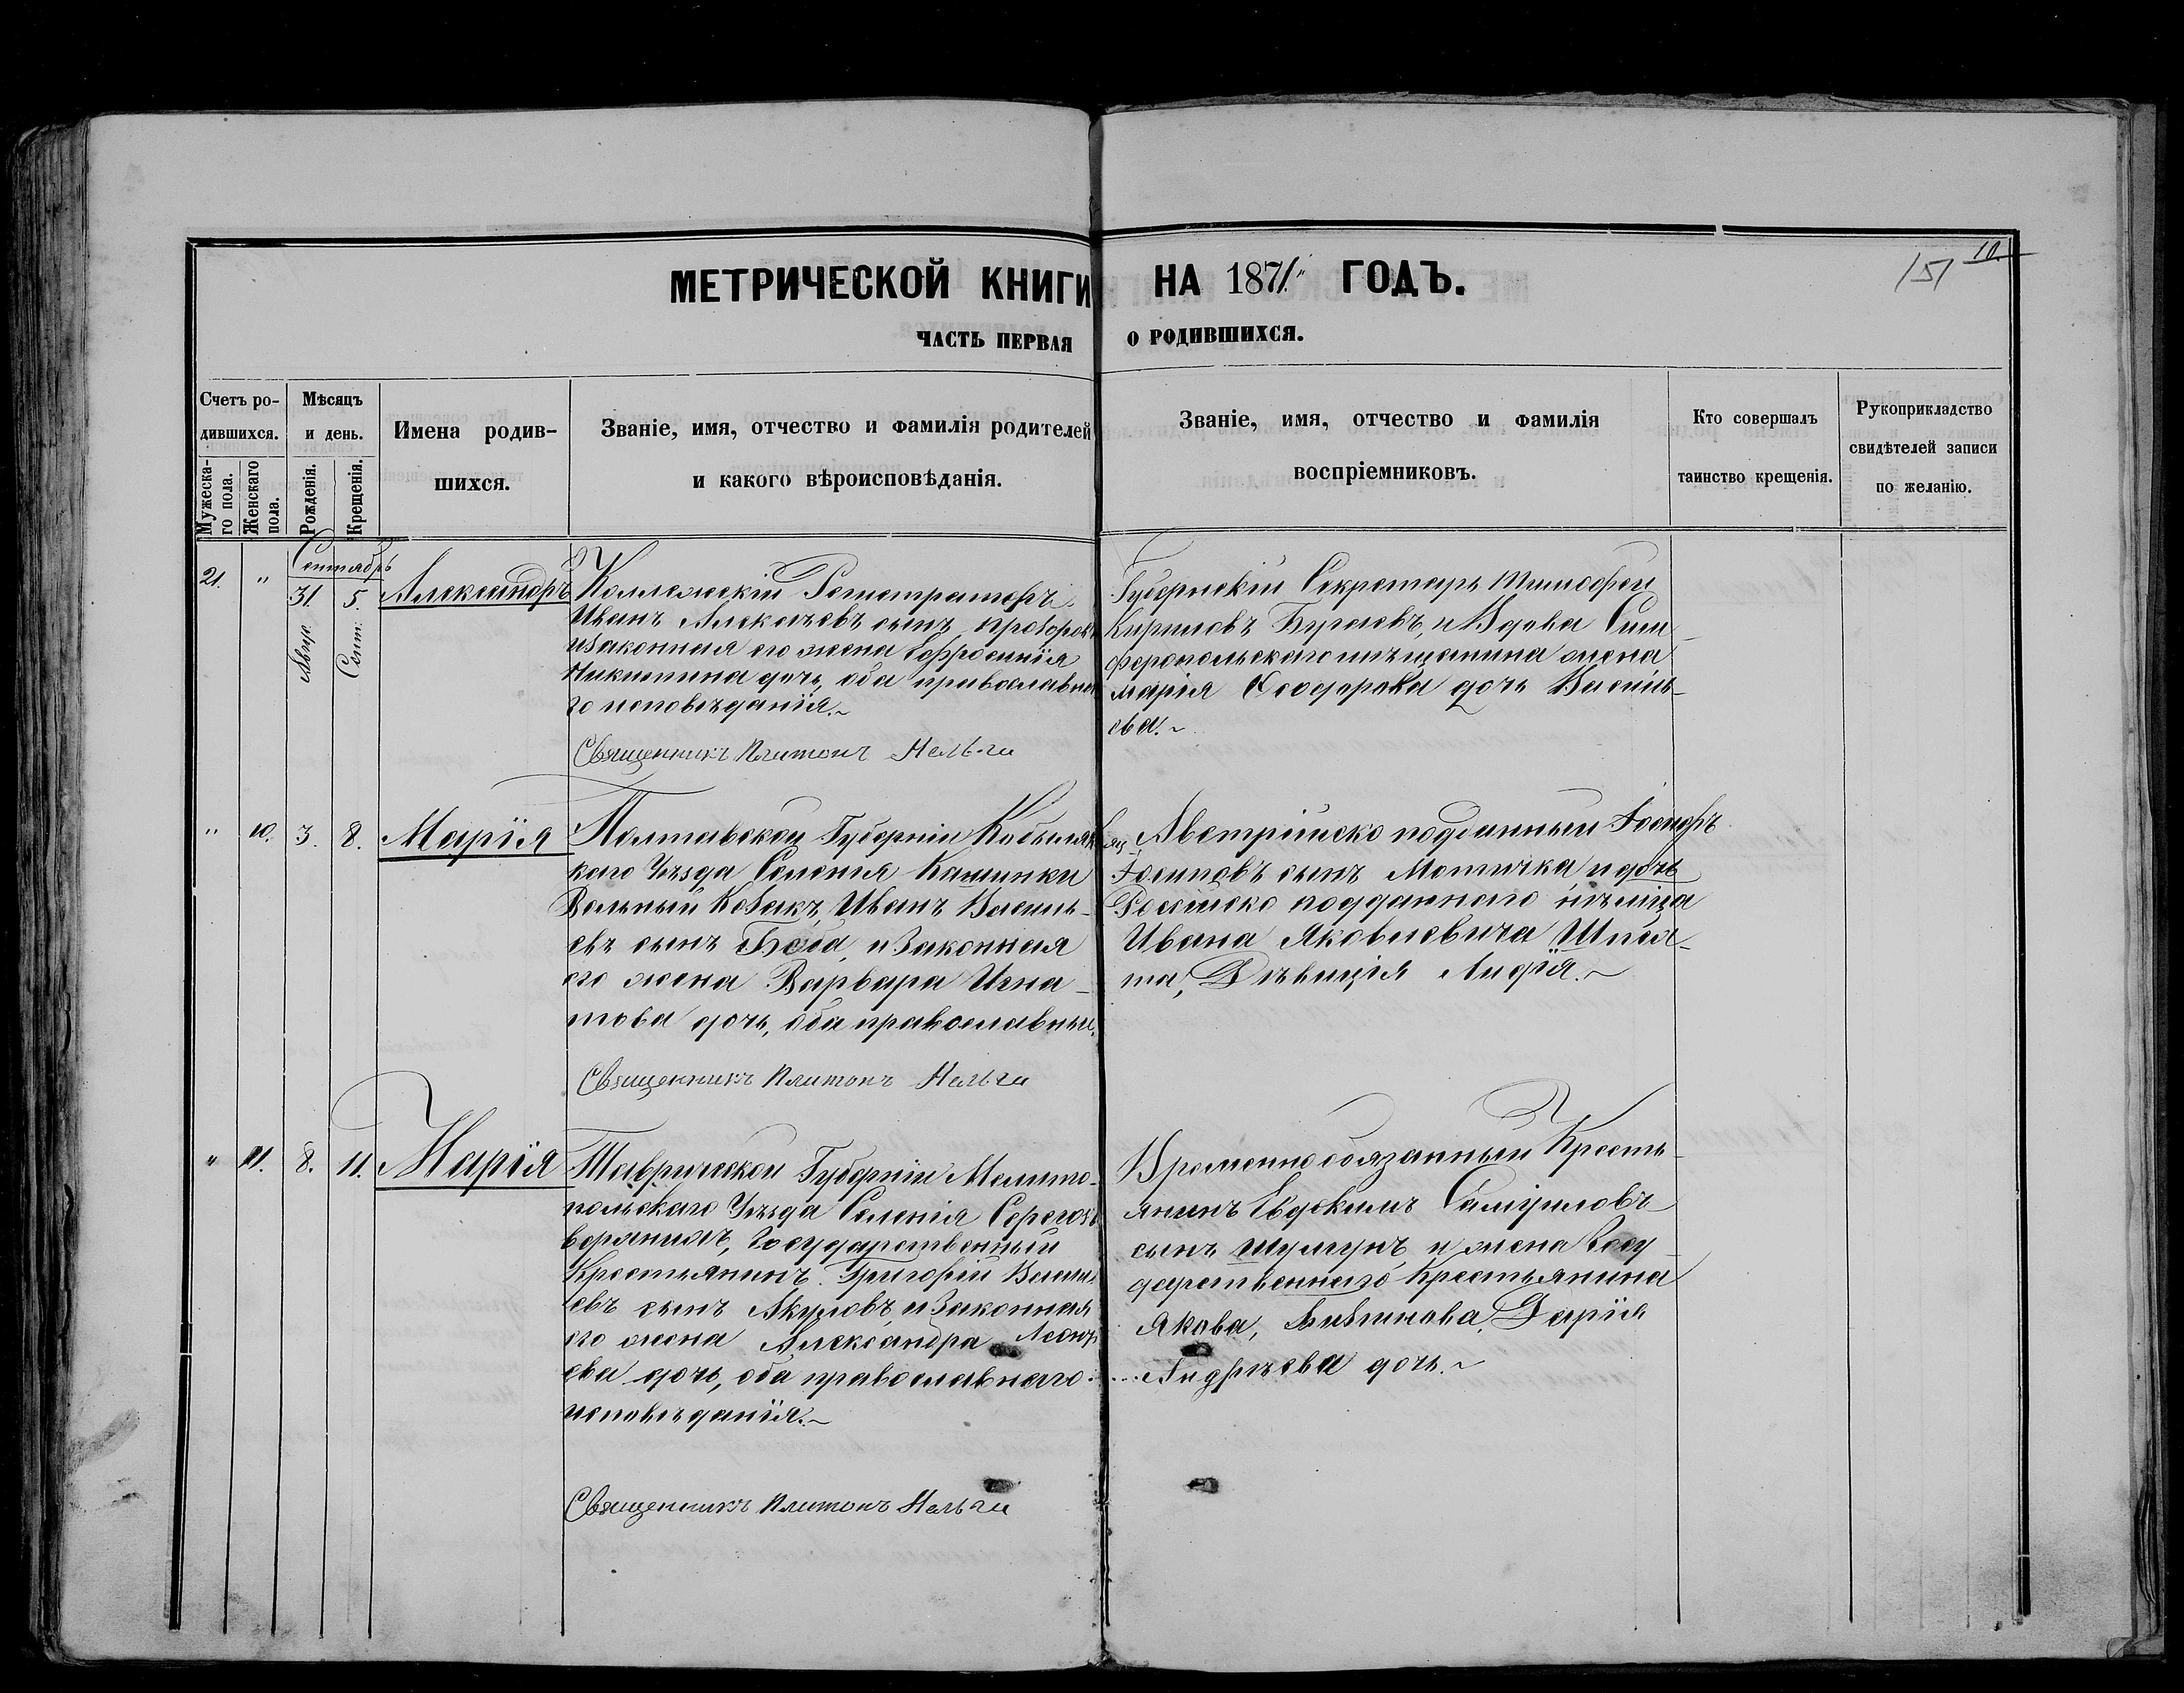 МЕТРИЧЕСКОЙ КНИГИ НА 1871 ГОДЪ.
151
10.
ЧАСТЬ ПЕРВАЯ О РОДИВШИХСЯ.
Счетъ ро-
дившихся.
Мужеска-
го пола.
Женскаго
пола.
Мѣсяцъ
и день.
Рожденія.
Крещенія.
Имена родив-
шихся.
Званіе, имя, отчество и фамилія родителей
и какого вѣроисповѣданія.
Званіе, имя, отчество и фамилія
воспріемниковъ.
Кто совершалъ
таинство крещенія.
Рукоприкладство
свидѣтелей записи
по желанію.
Сентябрь
21. " 31. Авгус. 5. Сент. Александръ
Коллежскій Регистраторъ
Иванъ Алексѣевъ сынъ
и законная его жена Евфросинія
Никитина дочь, оба православна
го исповѣданія.~
Священникъ Платонъ
Губернскій Секретарь Тимофей
Кириловъ Бураевъ, и Вдова Сим
феропольскаго мѣщанина жена
Марія Феодорова дочь Василь-
ева.~
" 10. 3. 8. Марія
Полтавской Губерніи Кобыляк
каго Уѣзда Селенія Кашинки
Вольный Козакъ, Иванъ Василь-
евъ сынъ Боба, и Законная
его жена Варвара Игна-
това дочь, оба православны.
Священникъ Платонъ
Австрійско подданный Іосифъ
Іосиповъ сынъ Мотичка и дочь
Россійско подданного нѣмца
Ивана Яковлевича Шпея-
та, Дѣвиція Лидія.~
" 11. 8. 11. Марія
Таврической Губерніи Мелито-
польскаго Уѣзда Селенія
Государственный
Крестьянинъ Григорій Василь
евъ сынъ Акуловъ, и Законная
его жена Александра Леонть
ева дочь, оба православнаго
исповѣданія.~
Священникъ Платонъ
Временнообязанный Кресть-
янинъ Евдокимъ Самуиловъ
сынъ Шулгунъ, и жена Госу-
дарственнаго Крестьянина
Якова, Дарія
Андрѣева дочь.~